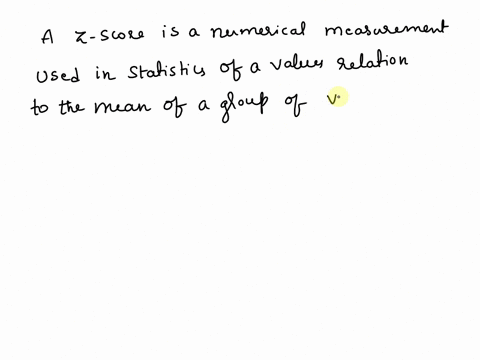 A z-score is a numerical measurement
Used in Statistics of a values relation
to the mean of a gloup of v